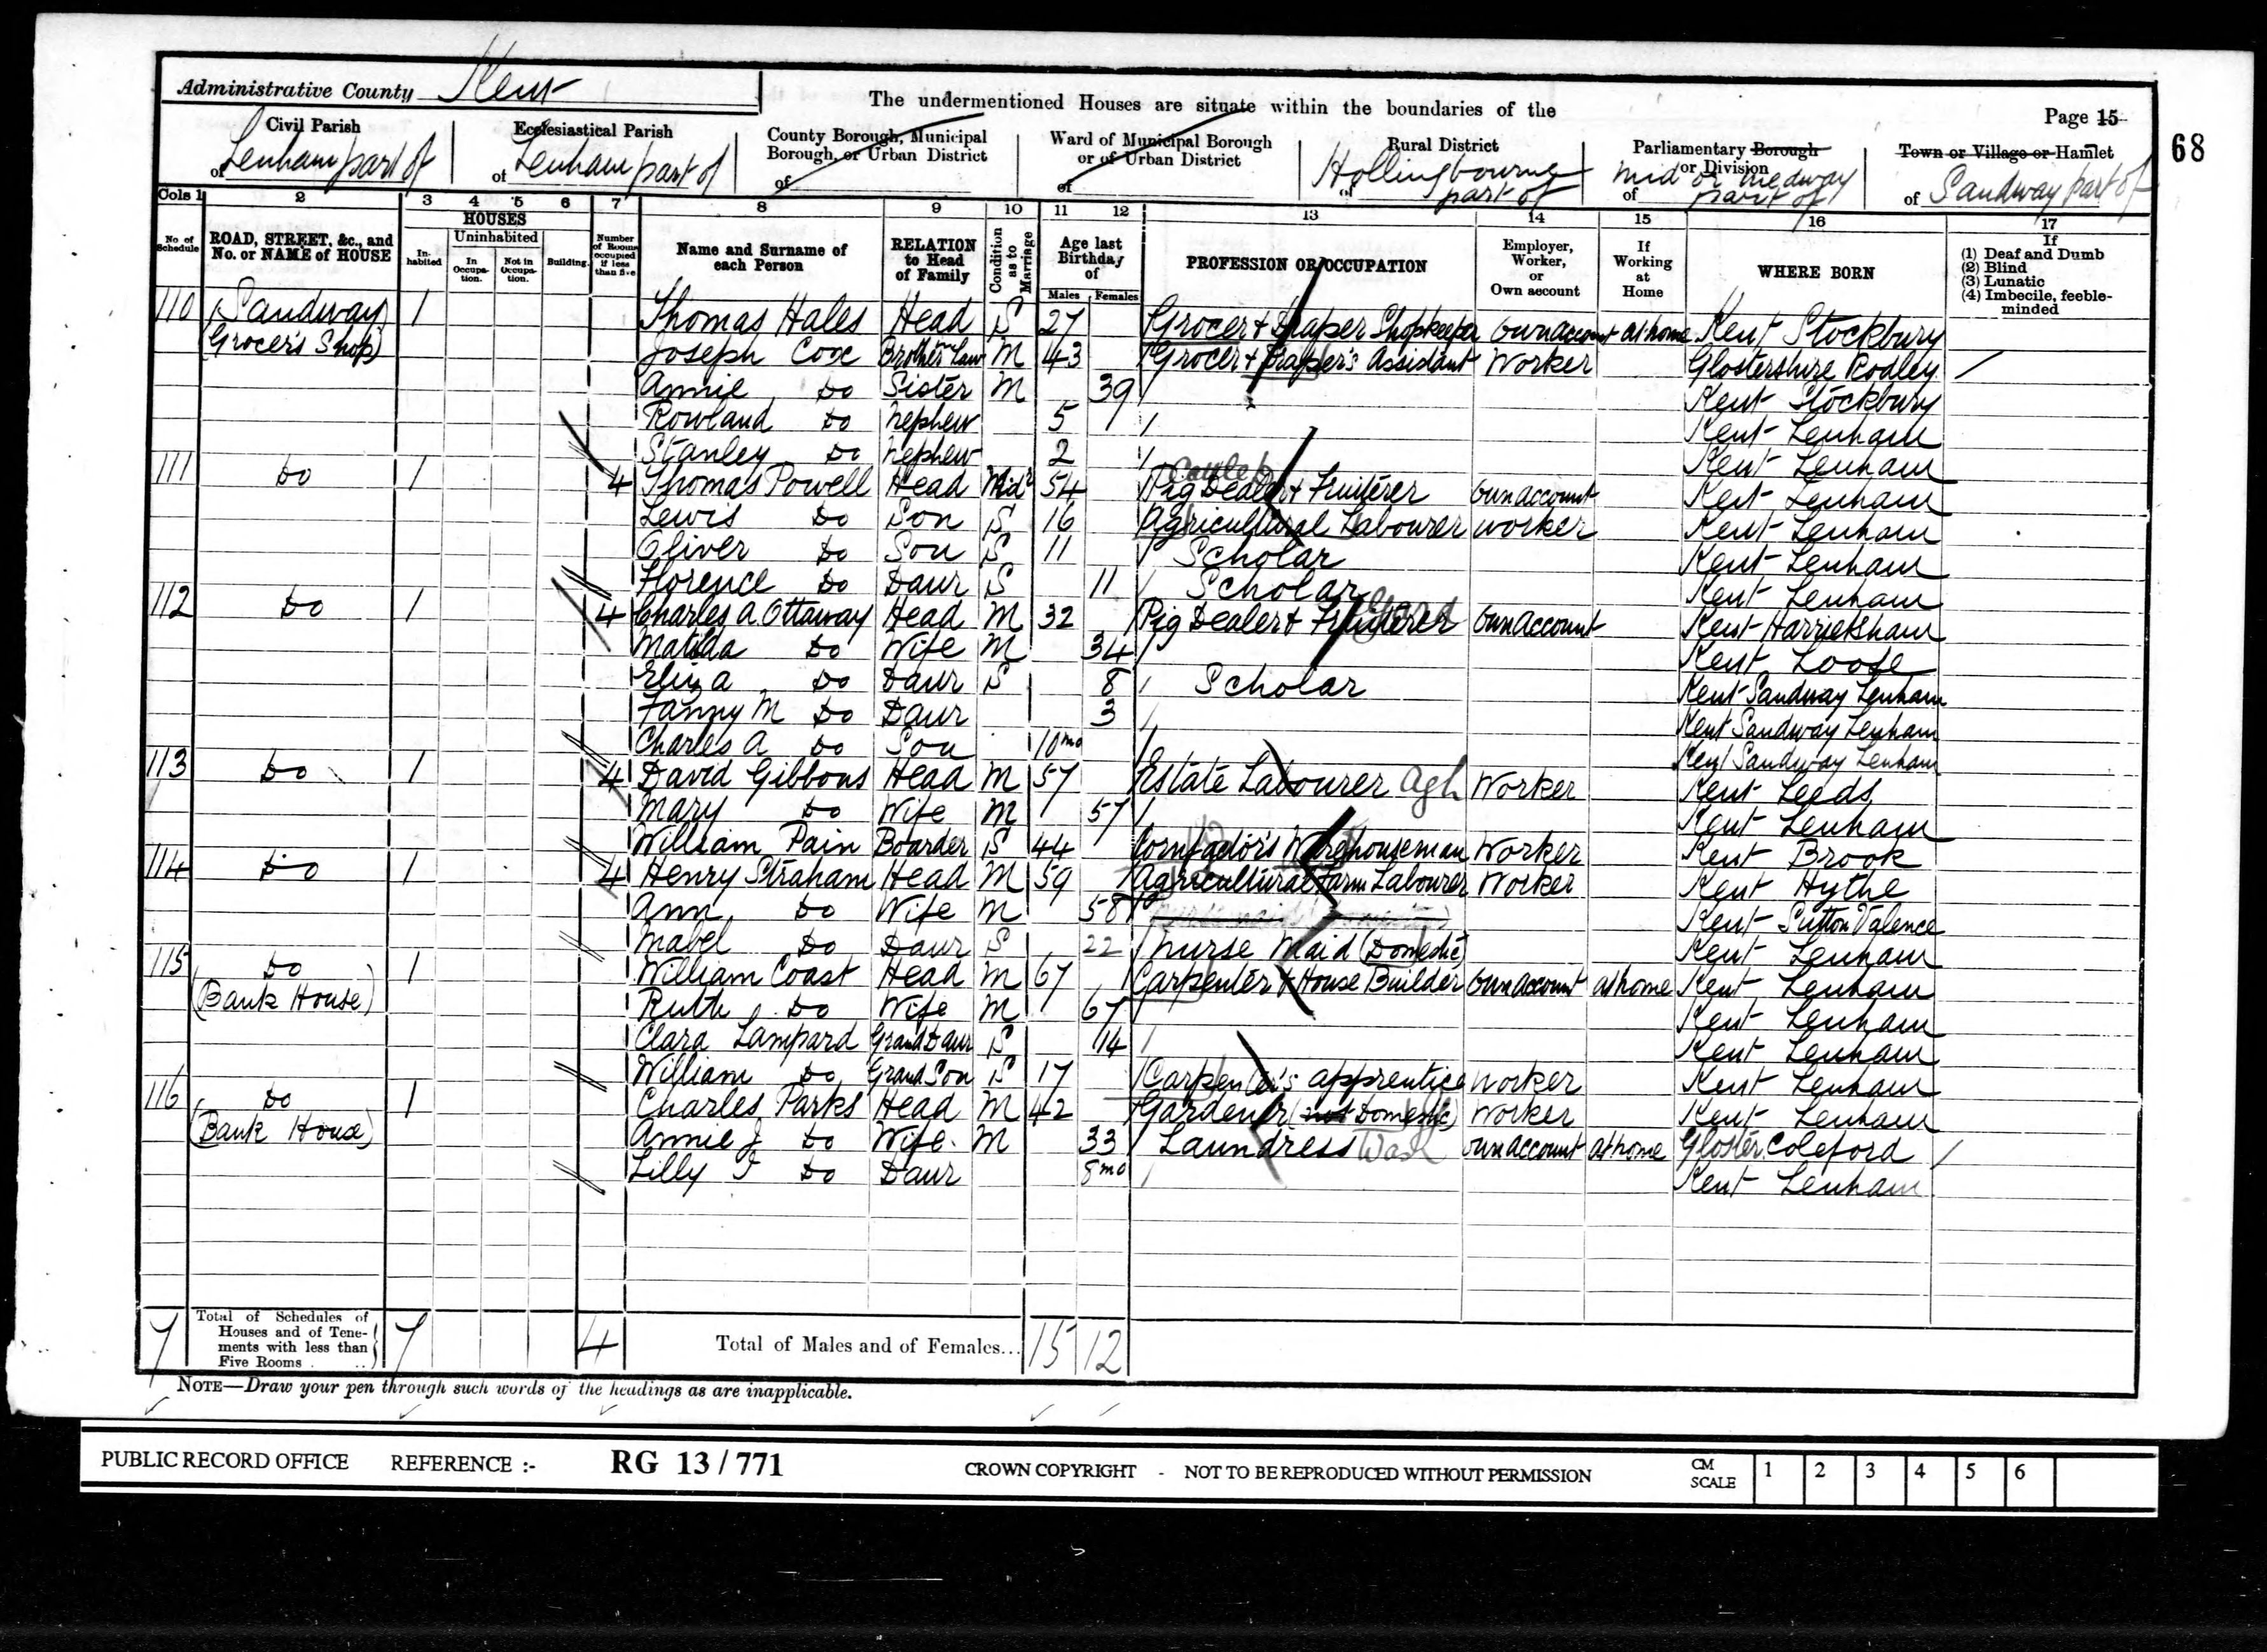 Administrative County Kent
The undermentioned Houses are situate within the boundaries of the
Page 15
68
Civil Parish of Lenham part of
Ecclesiastical Parish of Lenham part of
County Borough, Municipal Borough, or Urban District of
Ward of Municipal Borough or of Urban District of
Rural District of Hollingbourne part of
Parliamentary Borough or Division of Mid or Medway part of
Town or Village or Hamlet of Sandway part of
Cols 1 2 3 4 5 6 7 8 9 10 11 12 13 14 15 16 17
No of Schedule
ROAD, STREET, &c., and No. or NAME of HOUSE
HOUSES
Inhabited
Uninhabited
In Occupation.
Not in Occupation.
Building
Number of Rooms occupied if less than five
Name and Surname of each Person
RELATION to Head of Family
Condition as to Marriage
Age last Birthday of
Males Females
PROFESSION OR OCCUPATION
Employer, Worker, or Own account
If Working at Home
WHERE BORN
If
(1) Deaf and Dumb
(2) Blind
(3) Lunatic
(4) Imbecile, feeble-minded
110 Sandway 1 Thomas Hales Head S 27 Grocer & Draper Shopkeeper Own account at home Kent Stockbury
(Grocer's Shop) Joseph Cox Brother in Law M 43 Grocer & Draper's Assistant Worker Glostershire Rodley
Annie Do Sister M 39 Kent Stockbury
Rowland Do Nephew 5 Kent Lenham
Stanley Do Nephew 2 Kent Lenham
Cattle
111 Do 1 4 Thomas Powell Head Widr 54 Pig Dealer & Fruiterer Own account Kent Lenham
Lewis Do Son S 16 Agricultural Labourer Worker Kent Lenham
Oliver Do Son S 11 Scholar Kent Lenham
Florence Do Daur S 11 Scholar Kent Lenham
112 Do 1 4 Charles A. Ottaway Head M 32 Pig Dealer & Fruiterer Own account Kent Harrietsham
Matilda Do Wife M 34 Kent Loose
Eliza Do Daur S 8 Scholar Kent Sandway Lenham
Fanny M Do Daur 3 Kent Sandway Lenham
Charles A Do Son 10mo Kent Sandway Lenham
113 Do 1 4 David Gibbons Head M 57 Estate Labourer Agl Worker Kent Leeds
Mary Do Wife M 57 Kent Lenham
William Pain Boarder S 44 Cornfactor's Warehouseman Worker Kent Brook
114 Do 1 4 Henry Straham Head M 59 Agricultural Farm Labourer Worker Kent Hythe
Ann Do Wife M 58 Kent Sutton Valence
Mabel Do Daur S 22 Nurse Maid (Domestic) Kent Lenham
115 Do 1 William Coast Head M 67 Carpenter & House Builder Own account at home Kent Lenham
(Bank House) Ruth Do Wife M 67 Kent Lenham
Clara Lampard Grand Daur S 14 Kent Lenham
William Do Grand Son S 17 Carpenter's apprentice Worker Kent Lenham
116 Do 1 Charles Parks Head M 42 Gardener (not Domestic) Worker Kent Lenham
(Bank House) Annie J Do Wife M 33 Laundress Wash Own account at home Gloster Coleford
Lilly I Do Daur 8mo Kent Lenham
7 Total of Schedules of Houses and of Tenements with less than Five Rooms 7 4 Total of Males and of Females... 15 12
NOTE—Draw your pen through such words of the headings as are inapplicable.
PUBLIC RECORD OFFICE REFERENCE :- RG 13 / 771 CROWN COPYRIGHT - NOT TO BE REPRODUCED WITHOUT PERMISSION CM SCALE 1 2 3 4 5 6